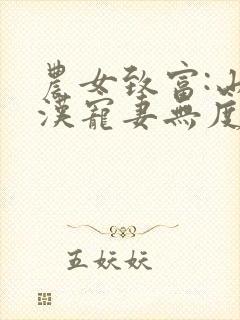 農女致富:山
漢寵妻無度
五妖妖